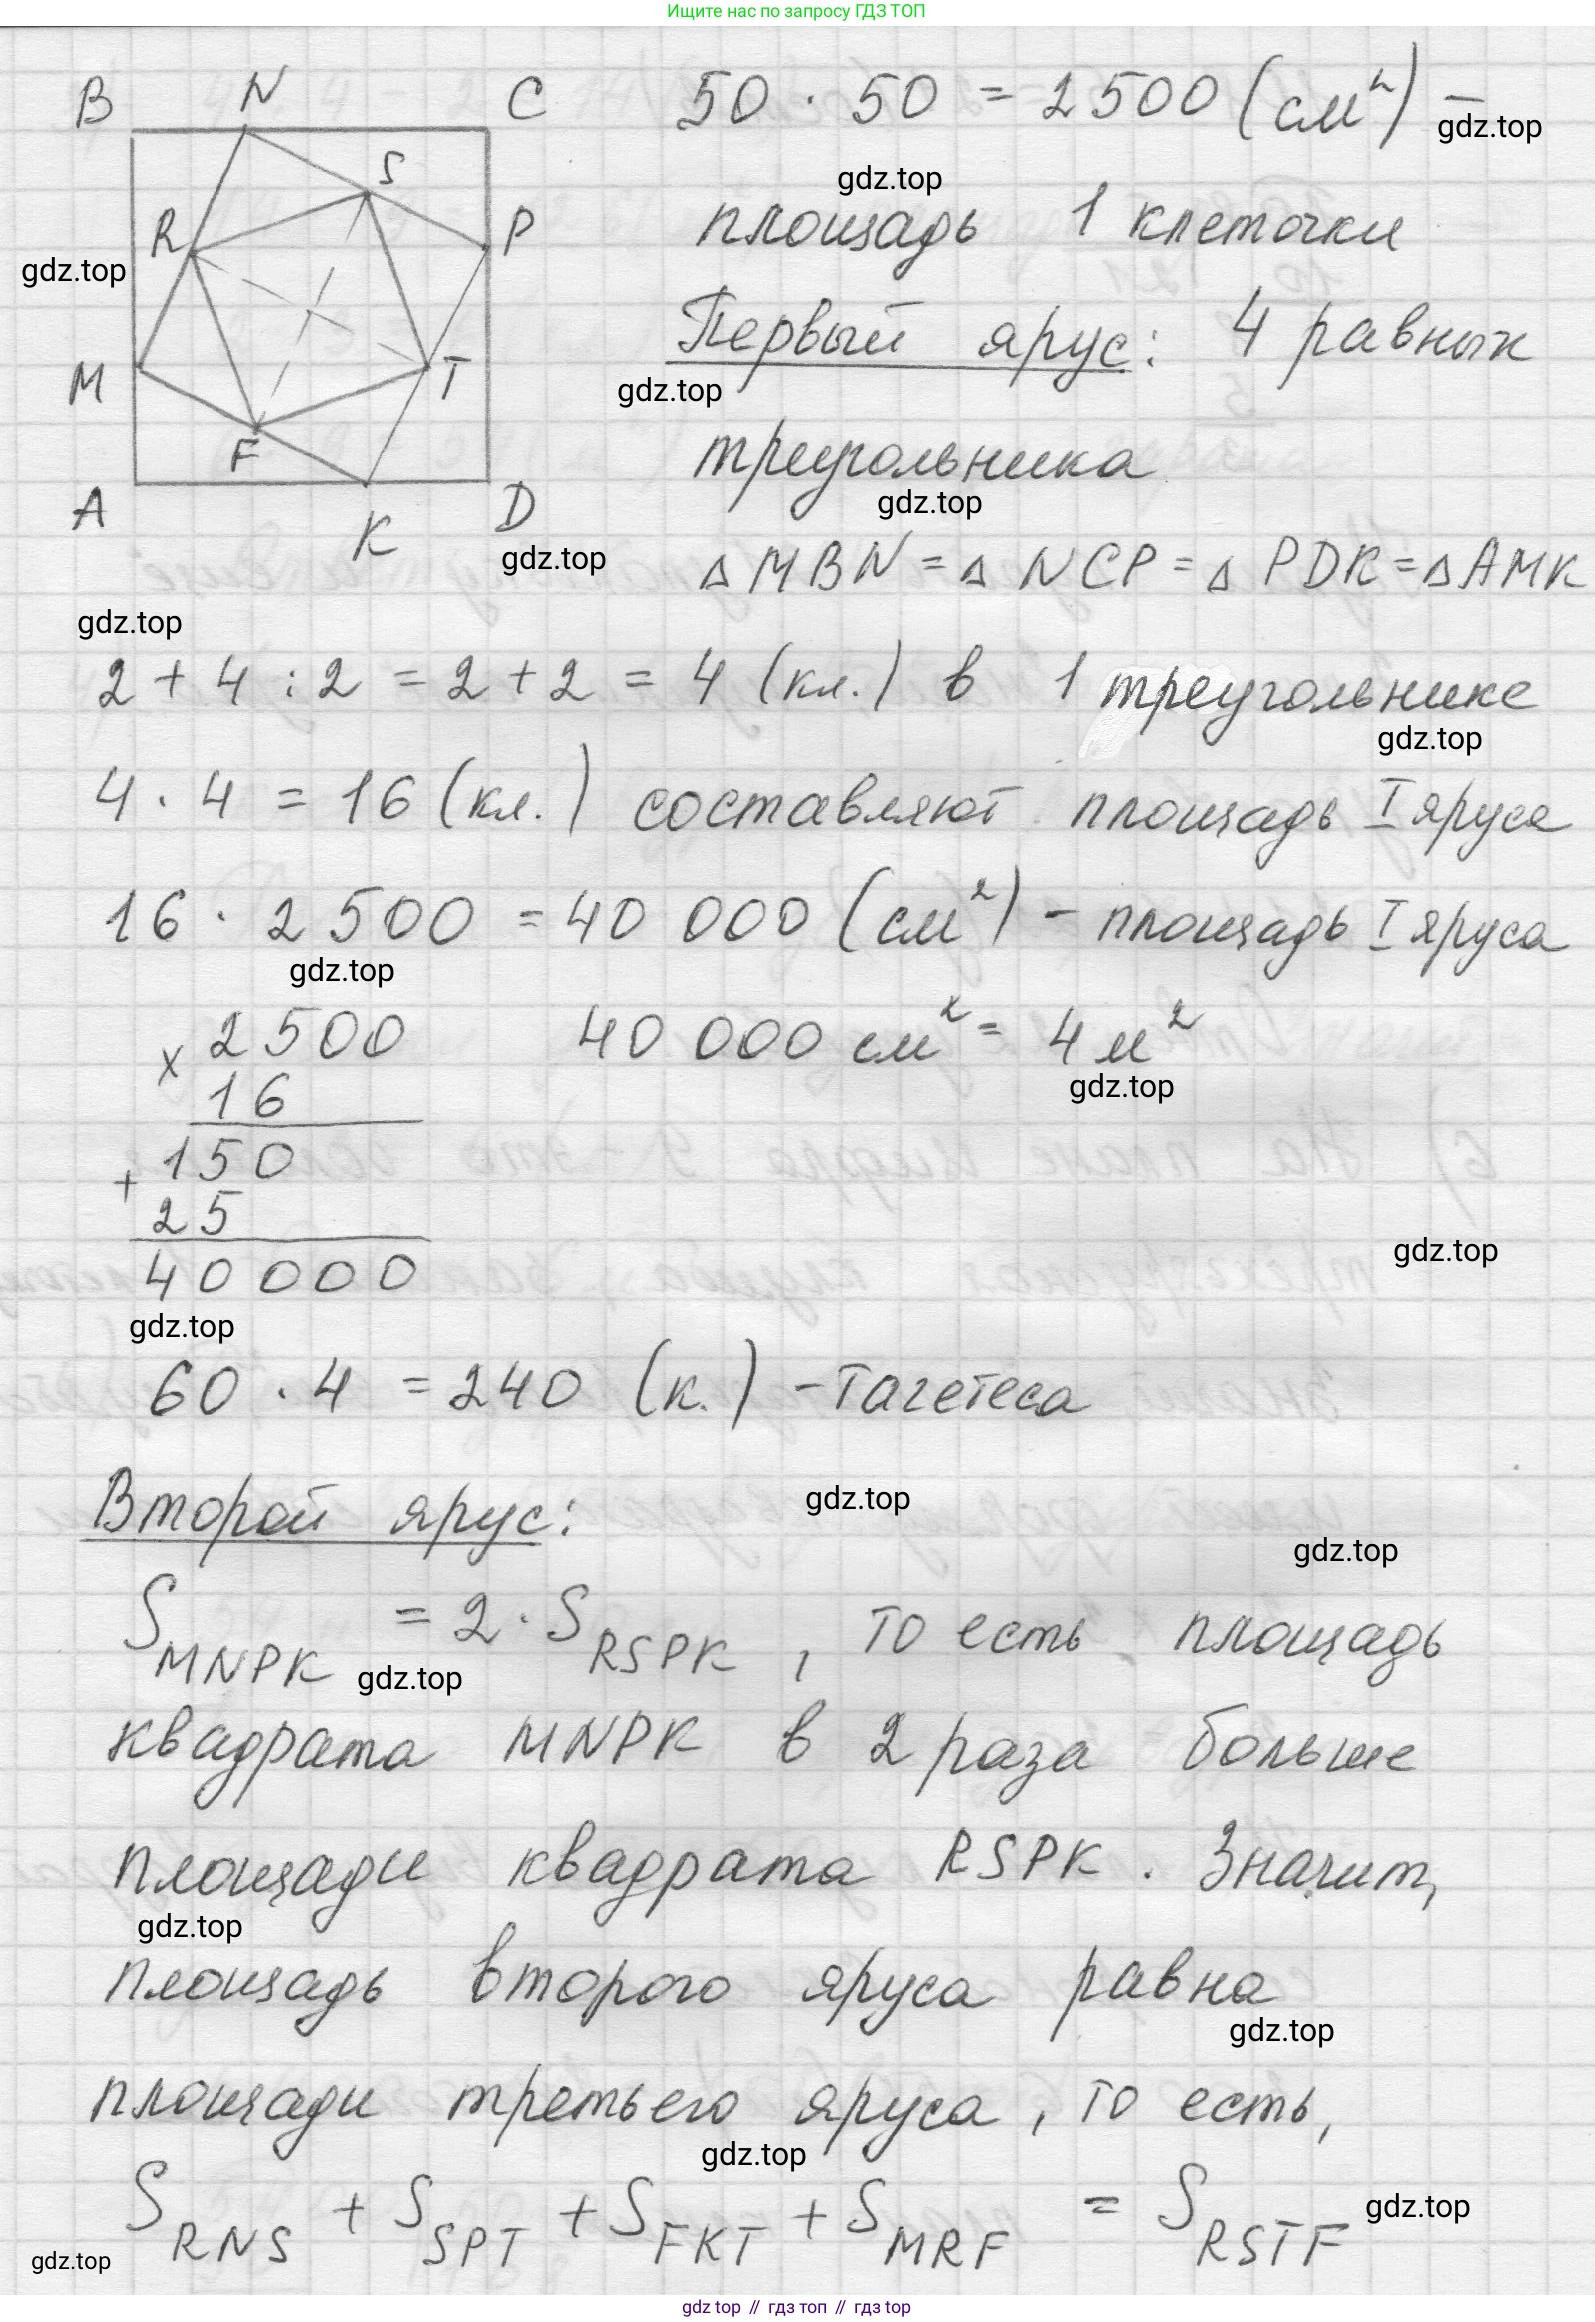 Ищите нас по запросу ГДЗ ТОП
B N C
S
R P
M T
F
A K D
50 · 50 = 2500 (см²) –
gdz.top
gdz.top
площадь 1 клеточки
gdz.top
Первый ярус: 4 равных
gdz.top
треугольника
gdz.top
gdz.top
Δ MBN = Δ NCP = Δ PDK = Δ AMK
gdz.top
2 + 4 : 2 = 2 + 2 = 4 (кл.) в 1 треугольнике
gdz.top
4 · 4 = 16 (кл.) составляют площадь I яруса
16 · 2 500 = 40 000 (см²) – площадь I яруса
gdz.top
x 2500
16
+ 150
25
40000
40 000 см² = 4 м²
gdz.top
gdz.top
gdz.top
60 · 4 = 240 (к.) – тагетеса
Второй ярус:
gdz.top
gdz.top
S MNPK = 2 · S RSPK , то есть площадь
gdz.top
квадрата MNPK в 2 раза больше
площади квадрата RSPK . Значит,
gdz.top
площадь второго яруса равна
gdz.top
площади третьего яруса , то есть,
gdz.top
S RNS + S SPT + S FKT + S MRF = S RSTF
gdz.top
gdz.top
gdz top // гдз топ // gdz top